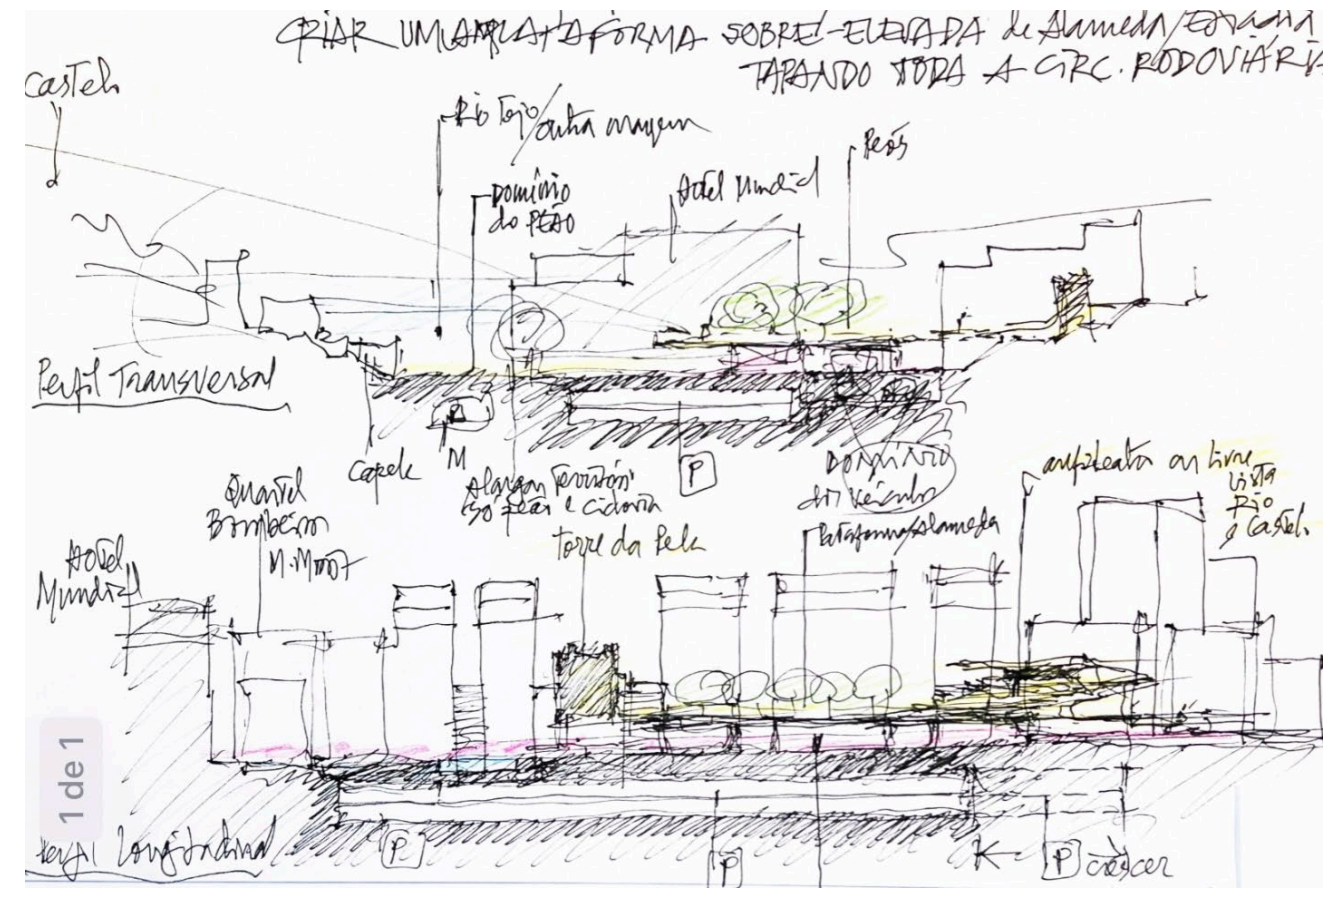 CRIAR UMA PLATAFORMA SOBRE-ELEVADA de Alameda/
TAPANDO TODA A CIRC. RODOVIÁRIA
Castelo
Rio Tejo/outra margem
Peões
Domínio
do PEÃO
Hotel Mundial
Perfil Transversal
Capela
M
P
Alargar
peão e ciclovia
DOMÍNIO
dos veículos
anfiteatro ar livre
vista
Rio
e Castelo
Quartel
Bombeiros
M. Moniz
Torre da Pela
Plataforma/Alameda
Hotel
Mundial
1 de 1
Perfil Longitudinal
P
P
P crescer